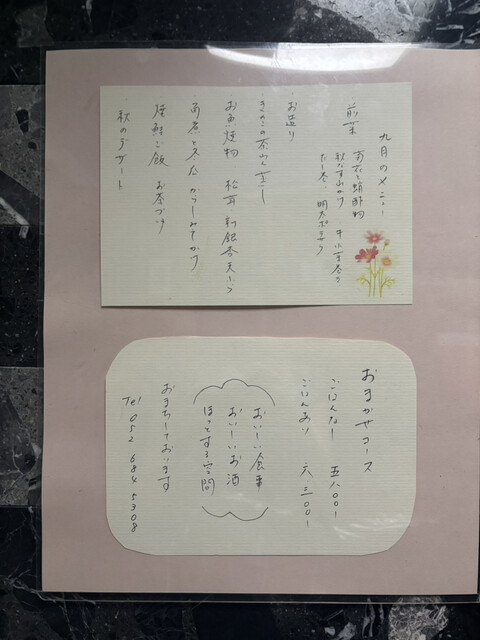 九月のメニュー
前菜
秋なす山かけ 牛小玉巻き
だし巻 明太ポテサラ
お造り
きのこの茶わん蒸し
お魚焼物 松茸 新銀杏天ぷら
角煮と冬瓜 からしみそかけ
焼鮭ご飯 お茶づけ
秋のデザート
おまかせコース
ごはんなし 五八〇〇ー
ごはんあり 六三〇〇ー
おいしい食事
おいしいお酒
ほっとする空間
おまちしております
Tel 052 684 5308